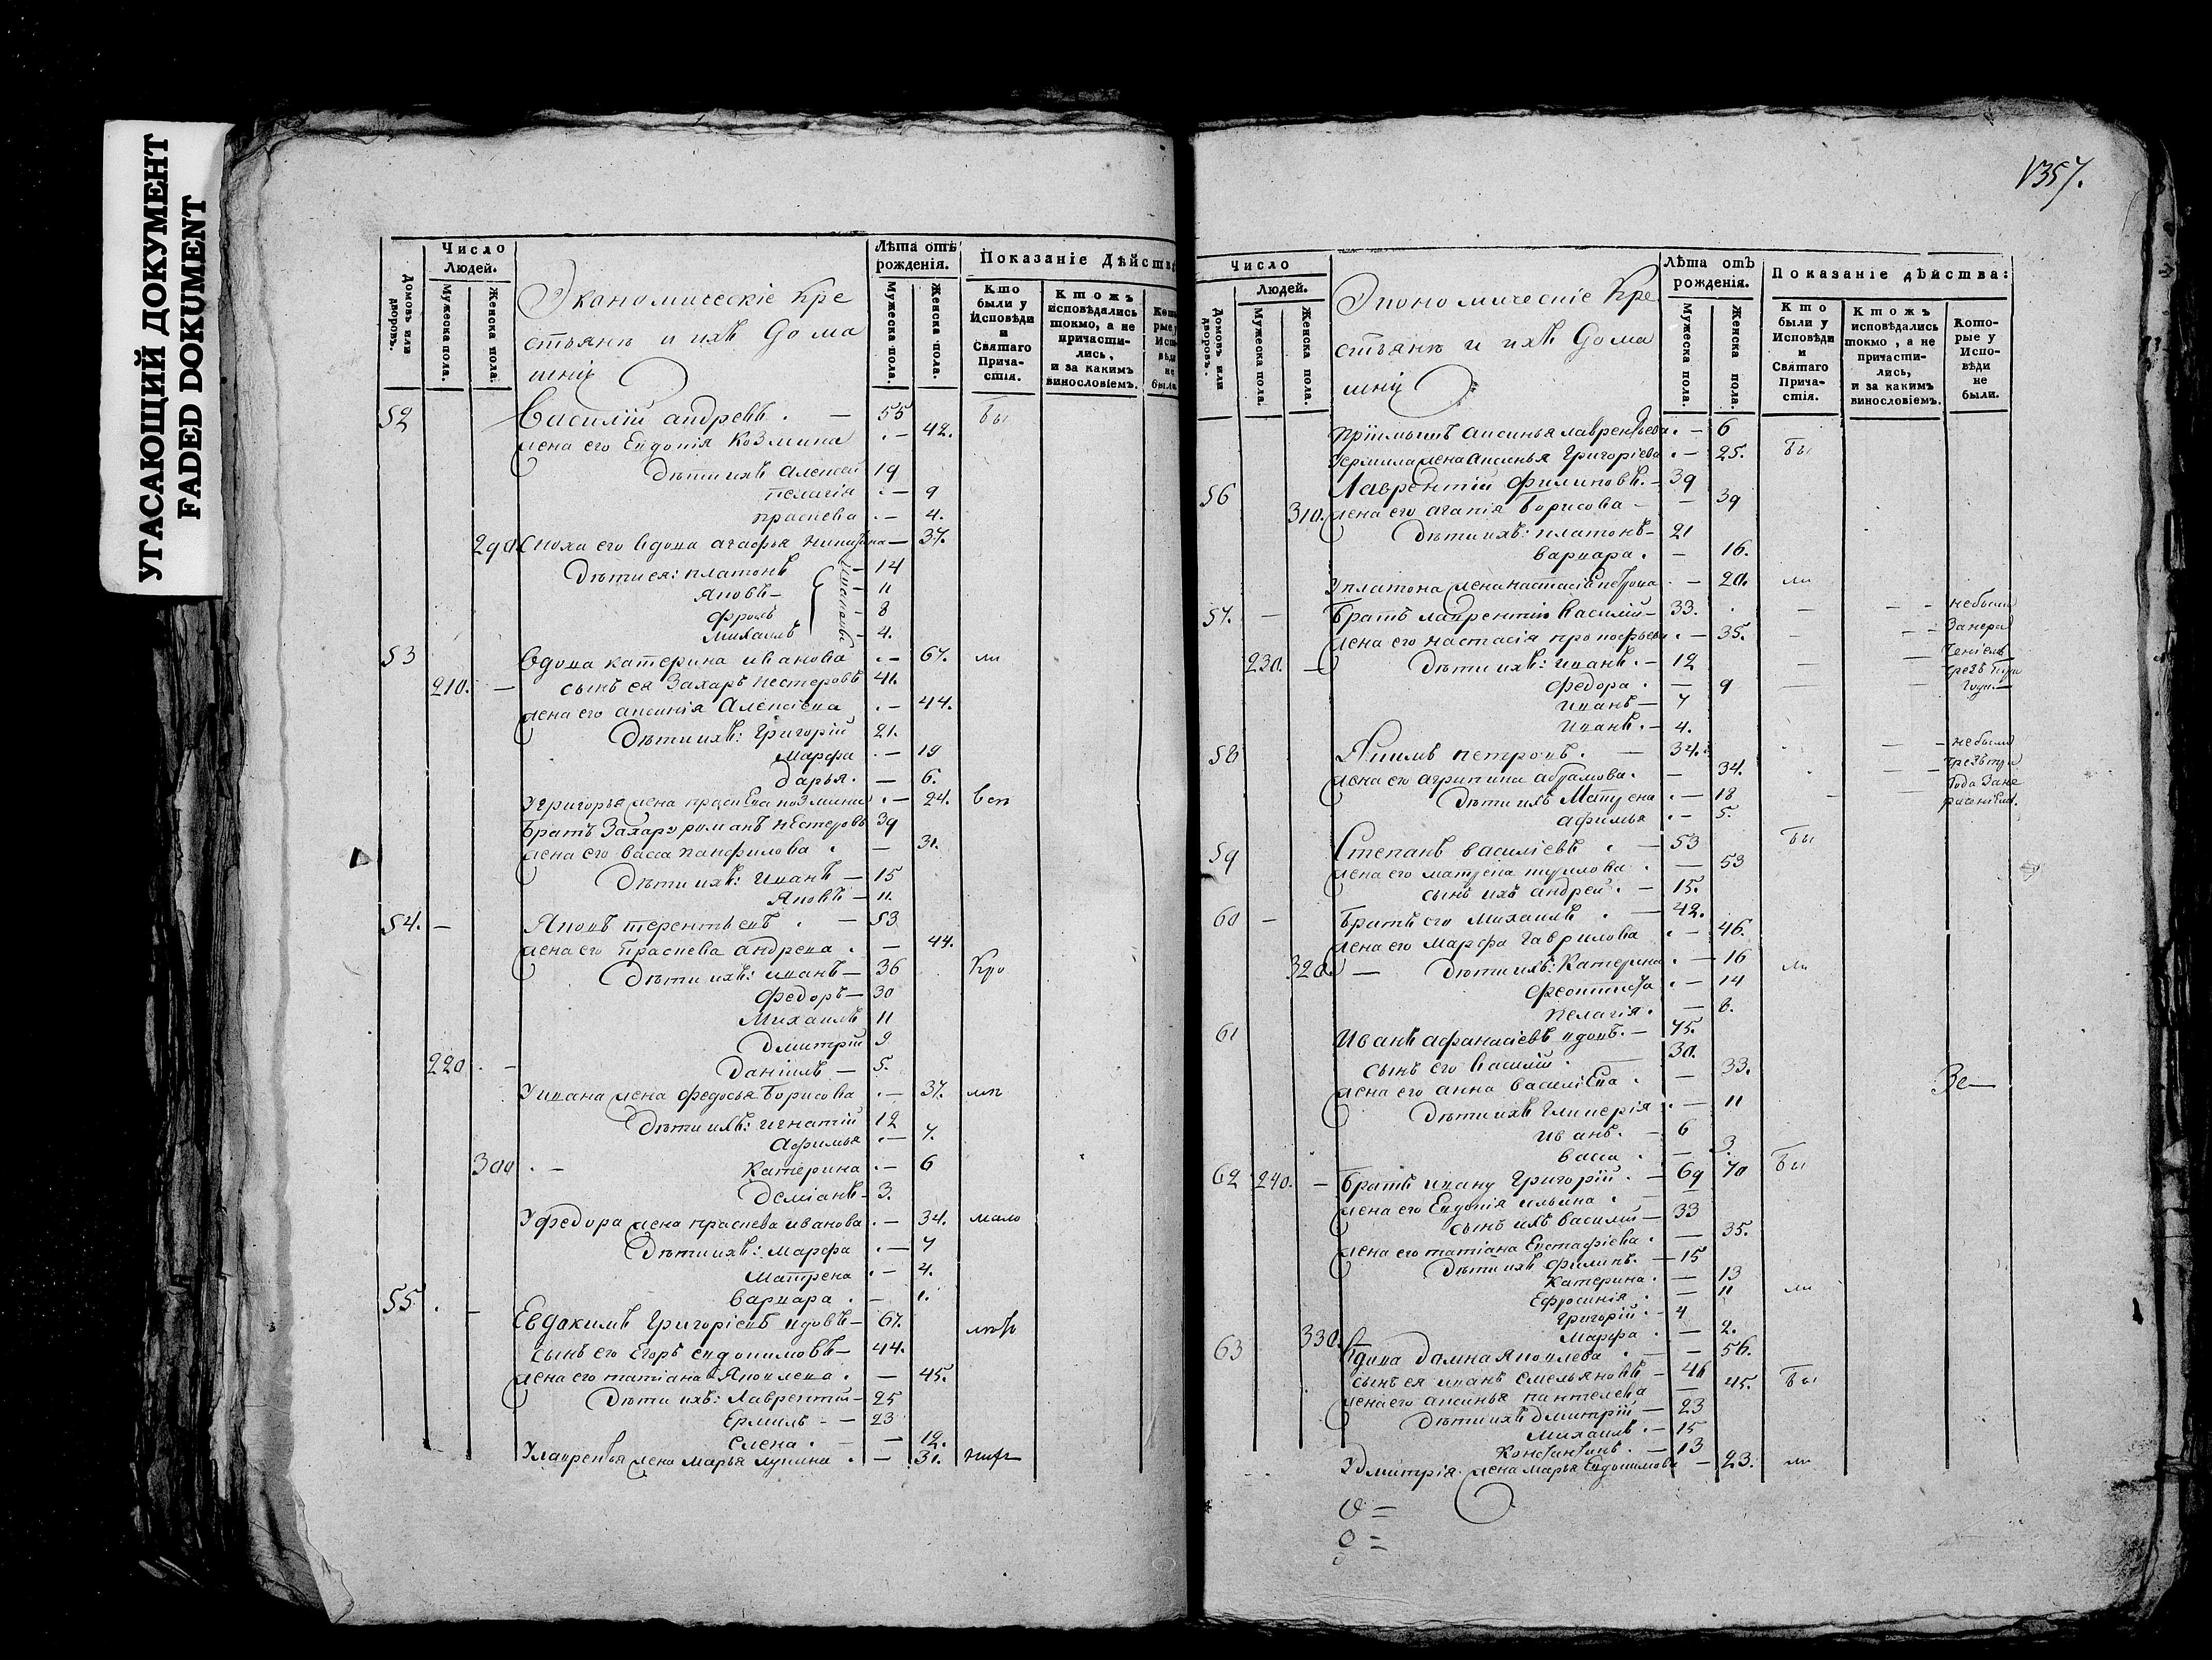 УГАСАЮЩИЙ ДОКУМЕНТ
FADED DOKUMENT
Число Людей.
Лѣта отъ рожденія.
Показаніе Дѣйства
Домовъ или дворовъ.
Мужеска пола.
Женска пола.
Экономическіе Кре
стьянѣ и ихъ дома
шніи
Мужеска пола.
Женска пола.
Кто были у Исповѣди и Святаго Причастія.
Ктожъ исповѣдались токмо, а не причастились, и за какимъ винословіемъ.
52 Василій андревъ. — 55 Бы
жена его Евдокія Козмина . — 42.
Дѣти ихъ Алексѣй 19
пелагія . — 9
праскева . — 4.
290. сноха его вдова агафья никитина — 37.
Дѣти ея: платонъ — 14
Яковъ — 11
Фролъ — 8
Михаилъ — 4.
53 Вдова катерина иванова . — 67. ли
210. — сынъ ея Захаръ нестеровъ 41.
жена его аксинія Алексіева . — 44.
Дѣти ихъ: Григорій 21.
Марфа . — 19
дарья. — 6.
У григорья жена праскева козмина . — 24. всѣ
братъ Захару романъ нестеровъ 39
жена его васса панфилова . — 31.
Дѣти ихъ: Иванъ — 15
Яковъ — 11.
54. — Яковъ терентьевъ . — 53
жена его Праскева андрева . — 44.
Дѣти ихъ: иванъ — 36 Кро
Федоръ — 30
Михаилъ 11
Дмитрій 9
220 . — Даніилъ — 5.
У ивана жена федосья Борисова . — 37. мѣ
Дѣти ихъ: игнатій 12
Афимья . — 7.
300 . — Катерина . — 6
Деміанъ — 3.
У федора жена праскева иванова . — 34. мало
Дѣти ихъ: Марфа . — 7
Матрена . — 4.
варвара . — 1.
55 . — Евдокимъ Григоріевъ вдовъ — 67. лѣт
сынъ его Егоръ евдокимовъ — 44.
жена его татіана Яковлева . — 45.
Дѣти ихъ: Лаврентій — 25
Ермилъ — 23
Елена . — 12.
У лаврентья жена Марья лукина . — 31. нихъ
357.
Число Людей.
Лѣта отъ рожденія.
Показаніе дѣйства:
Домовъ или дворовъ.
Мужеска пола.
Женска пола.
Экономическіе Кре
стьянѣ и ихъ дома
шніи
Мужеска пола.
Женска пола.
Кто были у Исповѣди и Святаго Причастія.
Ктожъ исповѣдались токмо, а не причастились, и за какимъ винословіемъ.
Которые у Исповѣди не были.
пріимышъ аксинья лаврентьева . — 6
У ермила жена аксинья Григоріева . — 25. Бы
56 Лаврентій Филиповъ. — 39
310. жена его агапія Борисова — 39
Дѣти ихъ: платонъ — 21
варвара . — 16.
У платона жена настасія петрова . — 20. ли
57. — Братъ лаврентію василій — 33. не были
жена его настасія прокофьева . — 35. Занера
230. — Дѣти ихъ: иванъ . — 12 деніемъ
Федора . — 9 чрезъ три
иванъ — 7 годы
Иванъ . — 4.
58 Якимъ петровъ . — 34. не были
жена его агрипина абрамова . — 34. чрезъ три
Дѣти ихъ Матрена . — 18 года Зане
афимья . — 5.
59 Степанъ василіевъ . — 53 Бы
жена его матрена — 53
сынъ ихъ андрей . — 15.
60 — Братъ его Михаилъ . — 42.
жена его Марфа Гаврилова . — 46.
320. — Дѣти ихъ: Катерина . — 16 ли
Феоктиста . — 14
Пелагія . — 8.
61 Иванъ афанасіевъ вдовъ . — 75.
сынъ его василій . — 30.
жена его анна василіева . — 33.
Дѣти ихъ Гликерія . — 11
Иванъ . — 6
васса . — 3.
62 240. — Братъ ивану Григорій . — 69 Бы
жена его Евдокія ильина . — 70
сынъ ихъ василій — 33
жена его татіана Евстафіева . — 35.
Дѣти ихъ филипъ . — 15
Катерина . — 13
Ефросинія . — 11 ли
Григорій . — 4
330. Марфа . — 2.
63 Вдова домна Яковлева . — 56.
сынъ ея иванъ емельяновъ — 46 Бы
жена его аксинья пантелева — 45.
Дѣти ихъ Дмитрій — 23
Михаилъ . — 15
Константинъ . — 13
У дмитрія жена марья Евдокимова — 23. ли